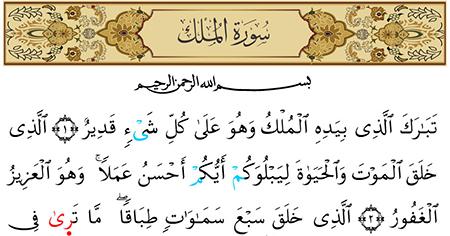 سُورَةُ المُلْكِ
بِسْمِ اللهِ الرَّحْمٰنِ الرَّحِيمِ
تَبَٰرَكَ ٱلَّذِى بِيَدِهِ ٱلْمُلْكُ وَهُوَ عَلَىٰ كُلِّ شَىْءٍ قَدِيرٌ ﴿١﴾ ٱلَّذِى
خَلَقَ ٱلْمَوْتَ وَٱلْحَيَوٰةَ لِيَبْلُوَكُمْ أَيُّكُمْ أَحْسَنُ عَمَلًاۚ وَهُوَ ٱلْعَزِيزُ
ٱلْغَفُورُ ﴿٢﴾ ٱلَّذِى خَلَقَ سَبْعَ سَمَٰوَٰتٍ طِبَاقًاۖ مَّا تَرِىٰ فِى